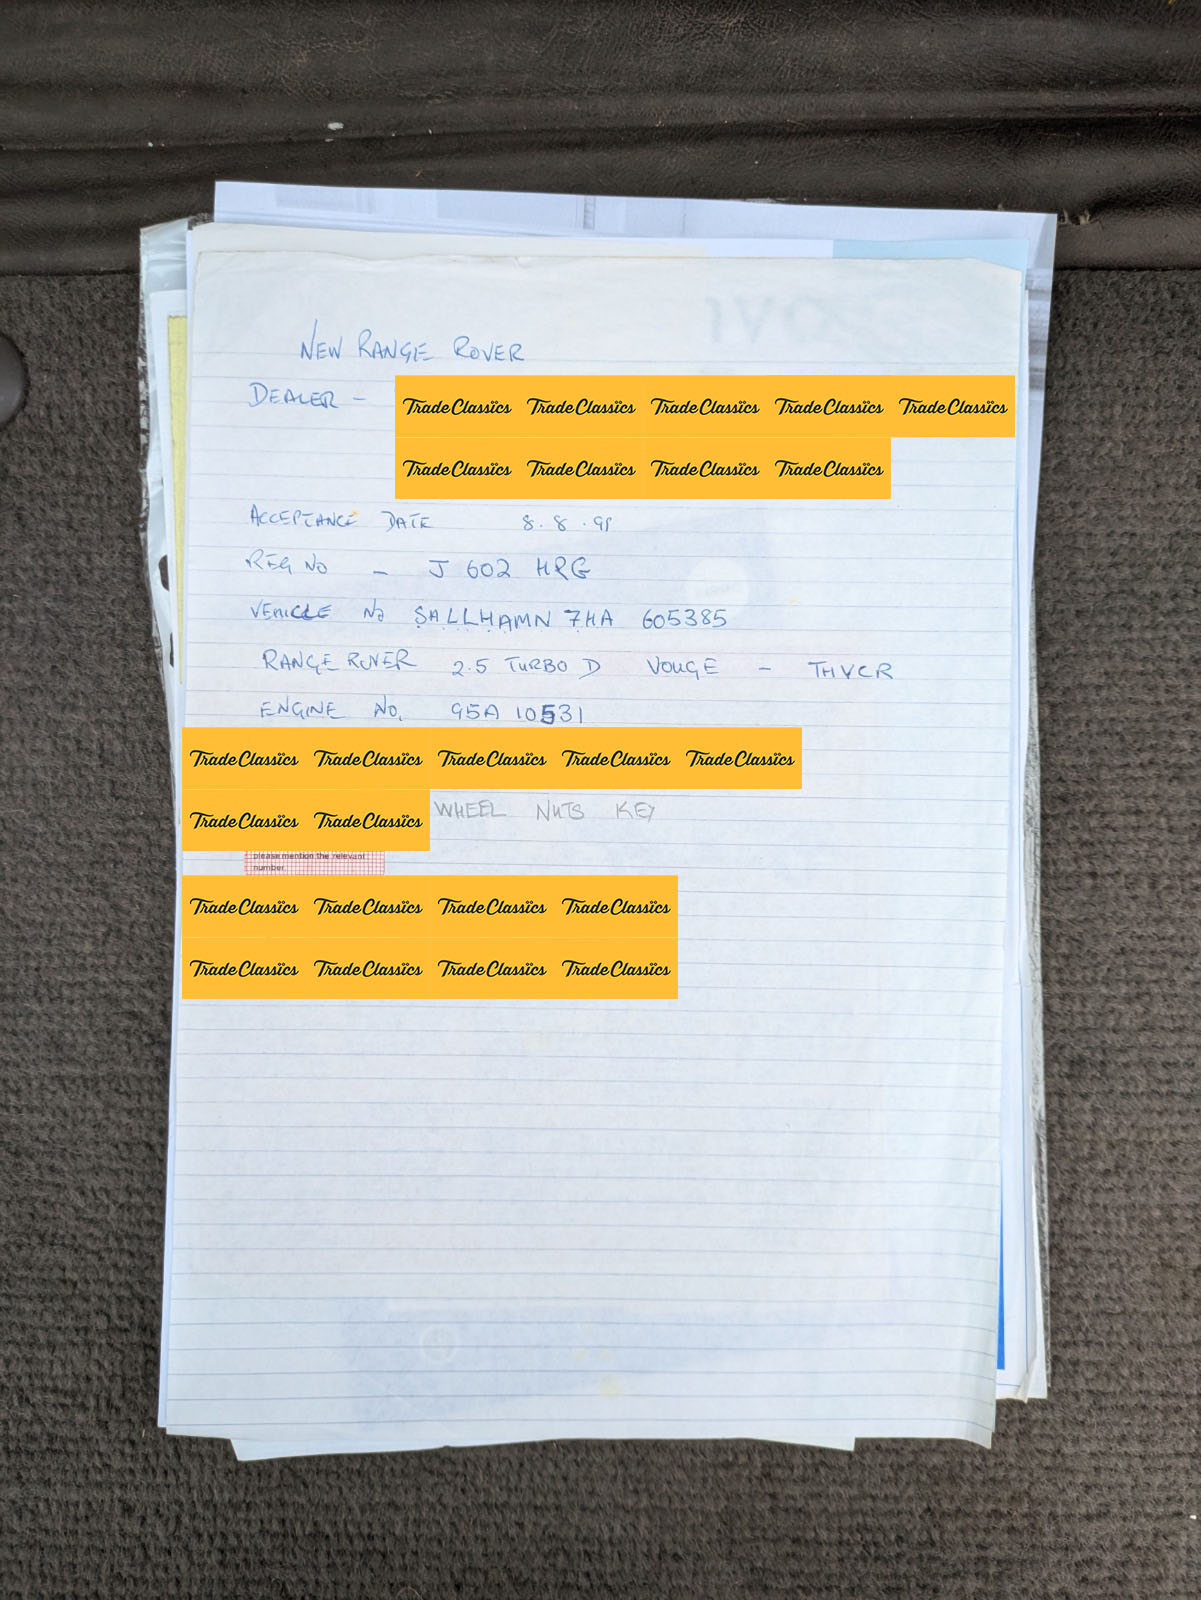 NEW RANGE ROVER
DEALER - TradeClassics TradeClassics TradeClassics TradeClassics TradeClassics
TradeClassics TradeClassics TradeClassics TradeClassics
ACCEPTANCE DATE 8.8.91
REG NO - J 602 HRG
VEHICLE NO SALLHAMN 7HA 605385
RANGE ROVER 2.5 TURBO D VOUGE - THVCR
ENGINE NO. 95A 10531
TradeClassics TradeClassics TradeClassics TradeClassics TradeClassics
TradeClassics TradeClassics WHEEL NUTS KEY
please mention the relevant
number
TradeClassics TradeClassics TradeClassics TradeClassics
TradeClassics TradeClassics TradeClassics TradeClassics